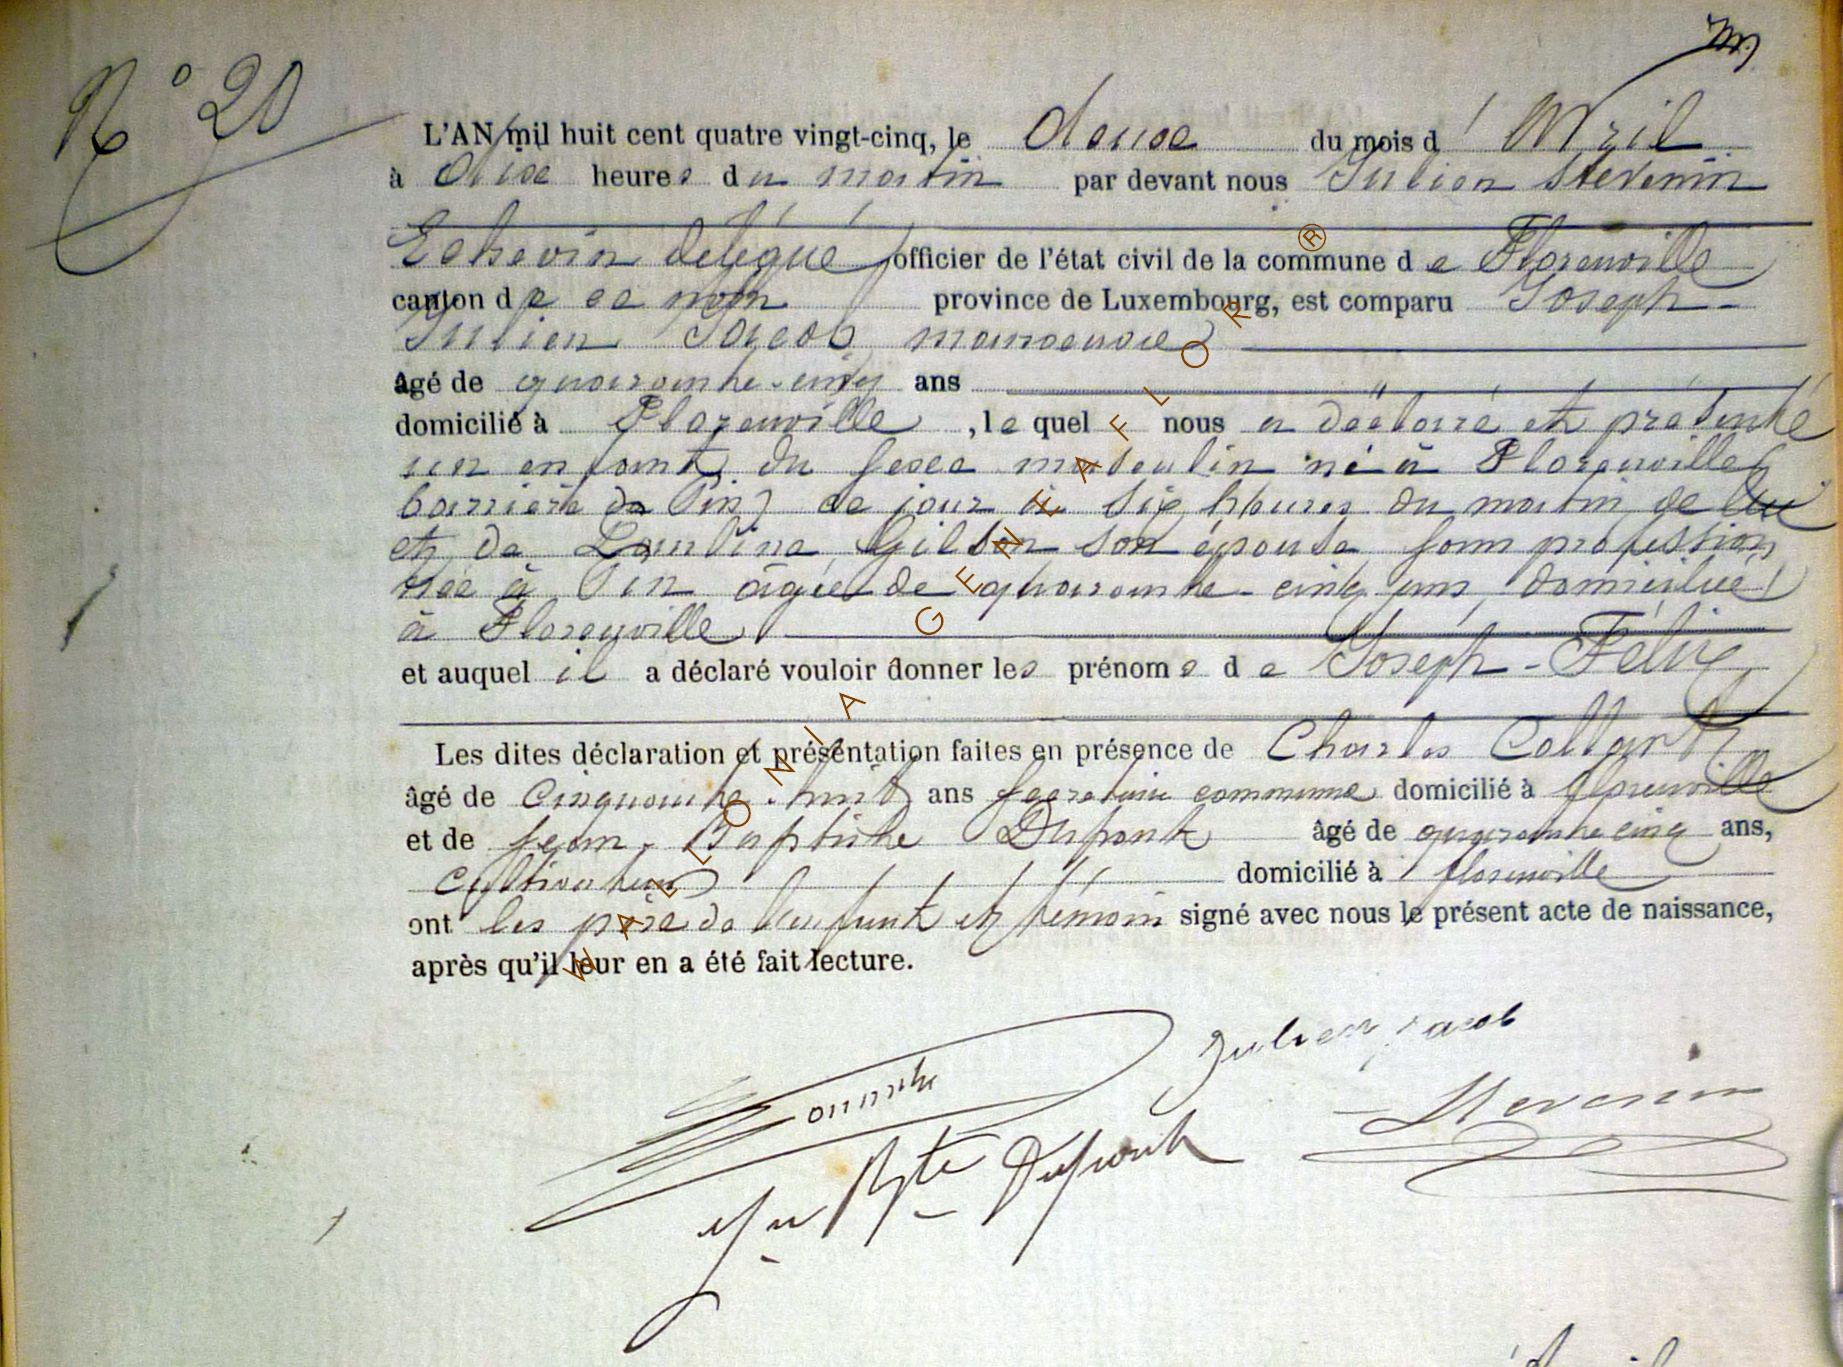 N° 20
L'AN mil huit cent quatre vingt-cinq, le douse du mois d' Avril
à dixe heures du matin par devant nous Julien Stevenin
Echevin délégué officier de l'état civil de la commune de Florenville
canton de ce nom province de Luxembourg, est comparu Joseph-
Julien Jacob manoeuvre
âgé de quarante-cinq ans
domicilié à Florenville, le quel nous a déclaré et présenté
un enfant du sexe masculin né à Florenville
barrière de Pin) ce jour à six heures du matin de lui
et de Pauline Gilson son épouse sans profession
née à Pin âgée de quarante-cinq ans, domiciliée
à Florenville
et auquel il a déclaré vouloir donner les prénoms de Joseph-Félix
Les dites déclaration et présentation faites en présence de Charles
âgé de Cinquante-huit ans secrétaire communal domicilié à florenville
et de jean-Baptiste Dupont âgé de quarante cinq ans,
Cultivateur domicilié à florenville
ont les père de l'enfant et témoin signé avec nous le présent acte de naissance,
après qu'il leur en a été fait lecture.
Julien Jacob
Stevenin
Jn Bte Dupont
WALLONIA GENEAFLOR ®